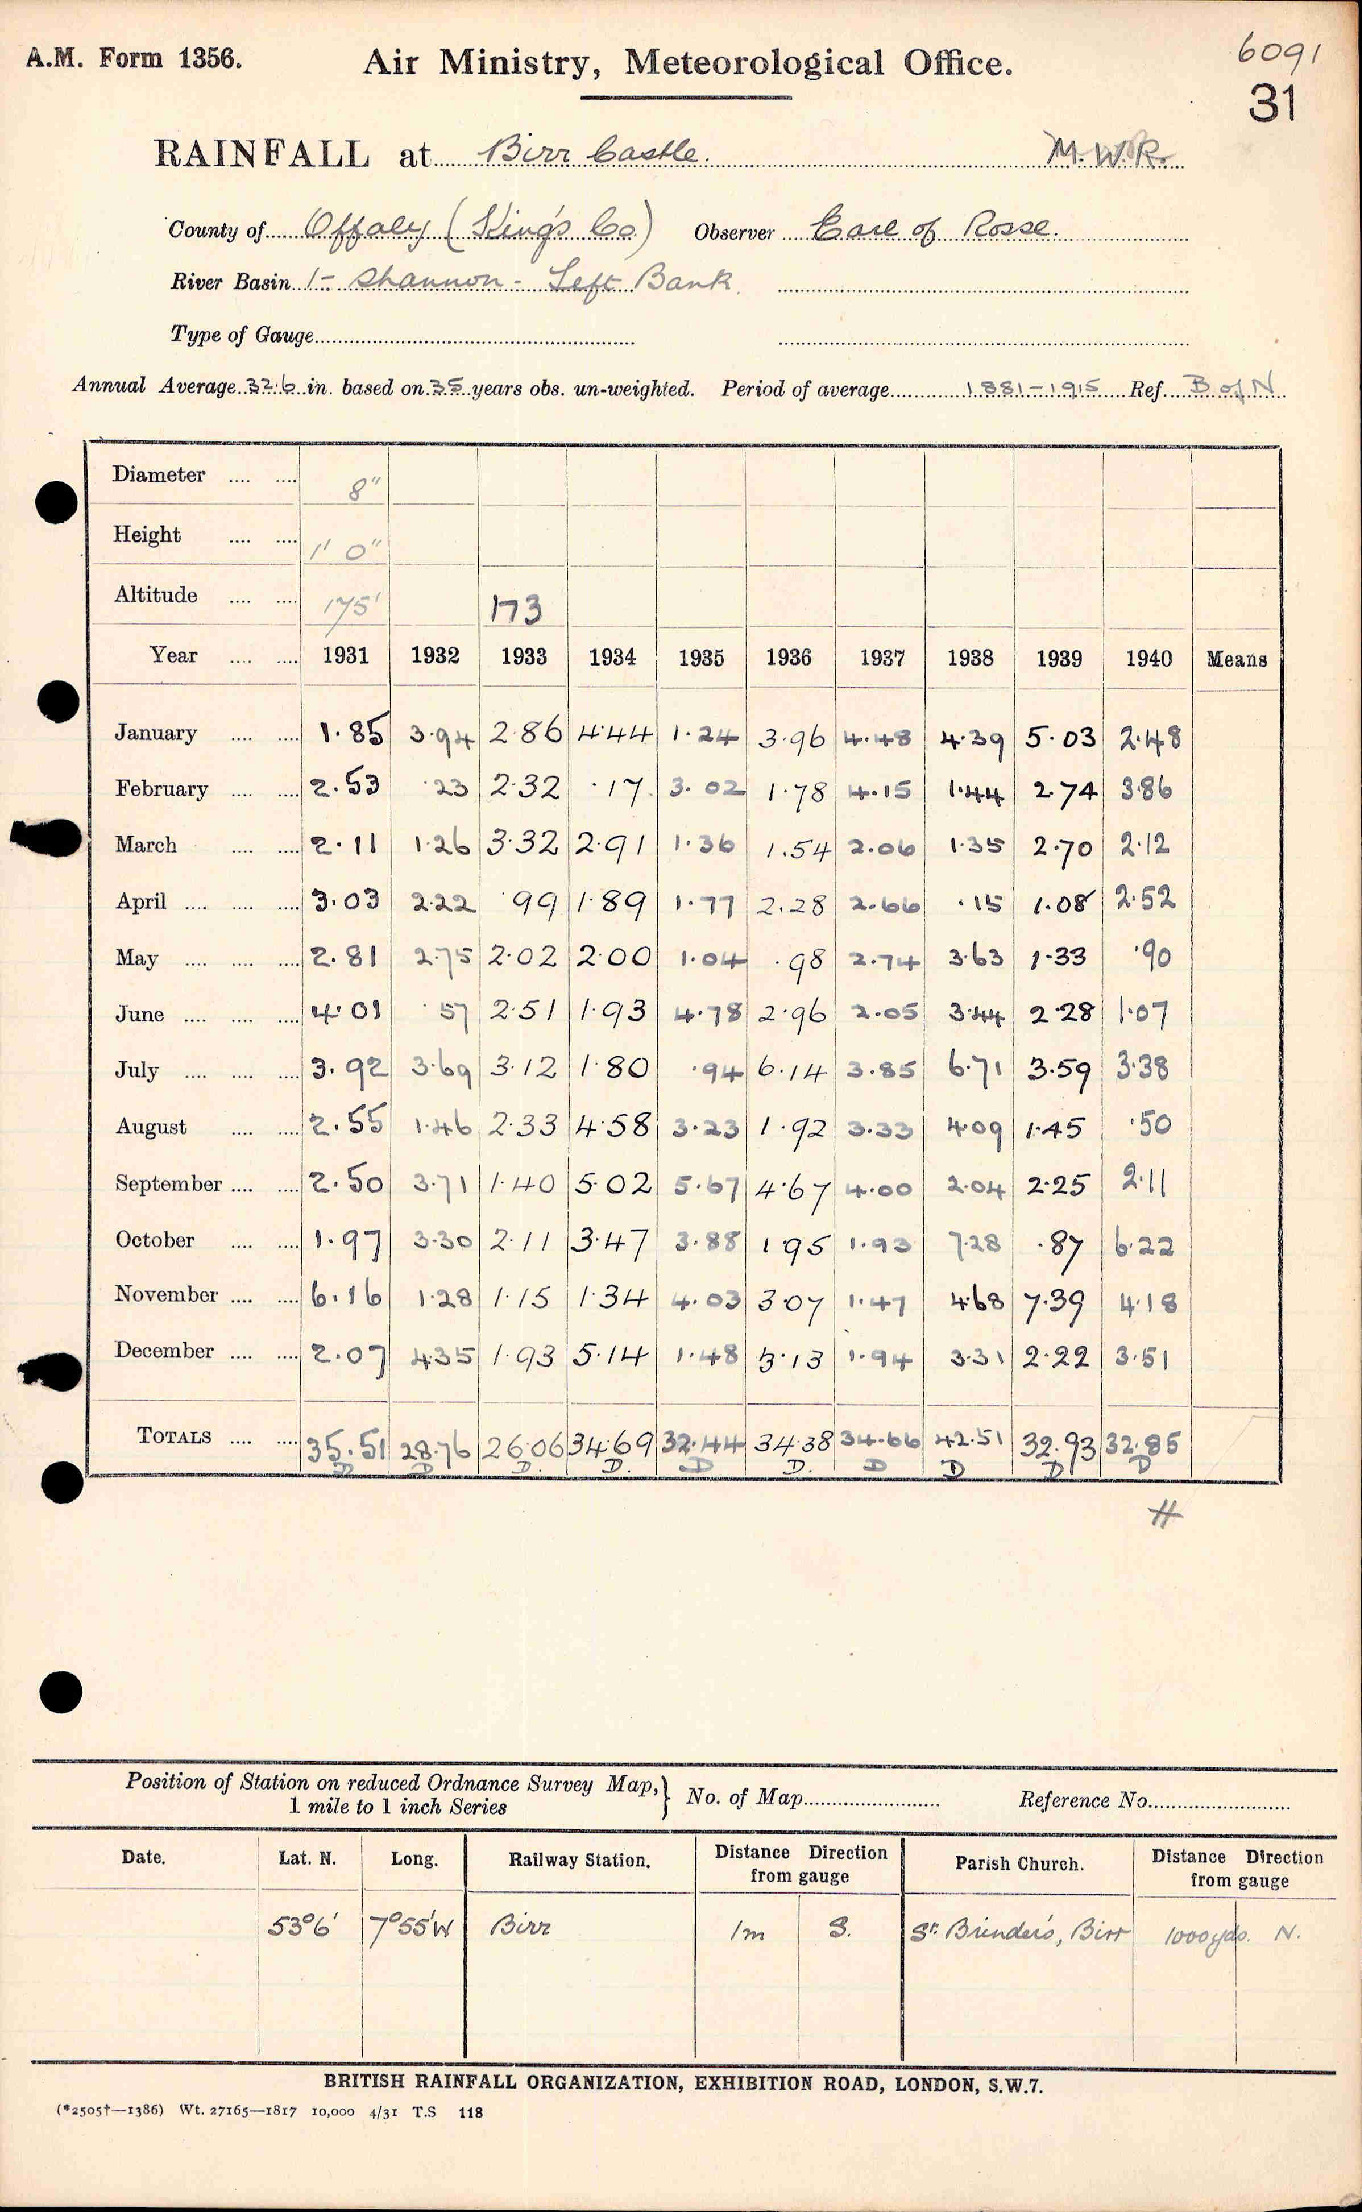 A.M. Form 1356.
Air Ministry, Meteorological Office.
6091
31
RAINFALL at Birr Castle. M.W.R.
County of Offaly (King's Co) Observer Earl of Rosse.
River Basin 1- Shannon - Left Bank
Type of Gauge
Annual Average 32.6 in. based on 35 years obs. un-weighted. Period of average 1881-1915 Ref. B of N
Diameter .... .... 8"
Height .... .... 1' 0"
Altitude .... .... 175' 173
Year .... .... 1931 1932 1933 1934 1935 1936 1937 1938 1939 1940 Means
January .... .... 1.85 3.94 2.86 4.44 1.24 3.96 4.48 4.39 5.03 2.48
February .... .... 2.53 .23 2.32 .17 3.02 1.78 4.15 1.44 2.74 3.86
March .... .... 2.11 1.26 3.32 2.91 1.36 1.54 2.06 1.35 2.70 2.12
April .... .... .... 3.03 2.22 .99 1.89 1.77 2.28 2.66 .15 1.08 2.52
May .... .... .... 2.81 2.75 2.02 2.00 1.04 .98 2.74 3.63 1.33 .90
June .... .... .... 4.01 .57 2.51 1.93 4.78 2.96 2.05 3.44 2.28 1.07
July .... .... .... 3.92 3.69 3.12 1.80 .94 6.14 3.85 6.71 3.59 3.38
August .... .... 2.55 1.46 2.33 4.58 3.23 1.92 3.33 4.09 1.45 .50
September .... .... 2.50 3.71 1.40 5.02 5.67 4.67 4.00 2.04 2.25 2.11
October .... .... 1.97 3.30 2.11 3.47 3.88 1.95 1.93 7.28 .87 6.22
November .... .... 6.16 1.28 1.15 1.34 4.03 3.07 1.47 4.68 7.39 4.18
December .... .... 2.07 4.35 1.93 5.14 1.48 3.13 1.94 3.31 2.22 3.51
TOTALS .... .... 35.51 28.76 26.06 34.69 32.44 34.38 34.66 42.51 32.93 32.85
D D D. D. D D. D D D D
#
Position of Station on reduced Ordnance Survey Map, 1 mile to 1 inch Series } No. of Map Reference No.
Date. Lat. N. Long. Railway Station. Distance Direction from gauge Parish Church. Distance Direction from gauge
53°6' 7°55'W Birr 1m S. 1000yds. N.
BRITISH RAINFALL ORGANIZATION, EXHIBITION ROAD, LONDON, S.W.7.
(*2505†—1386) Wt. 27165—1817 10,000 4/31 T.S 118